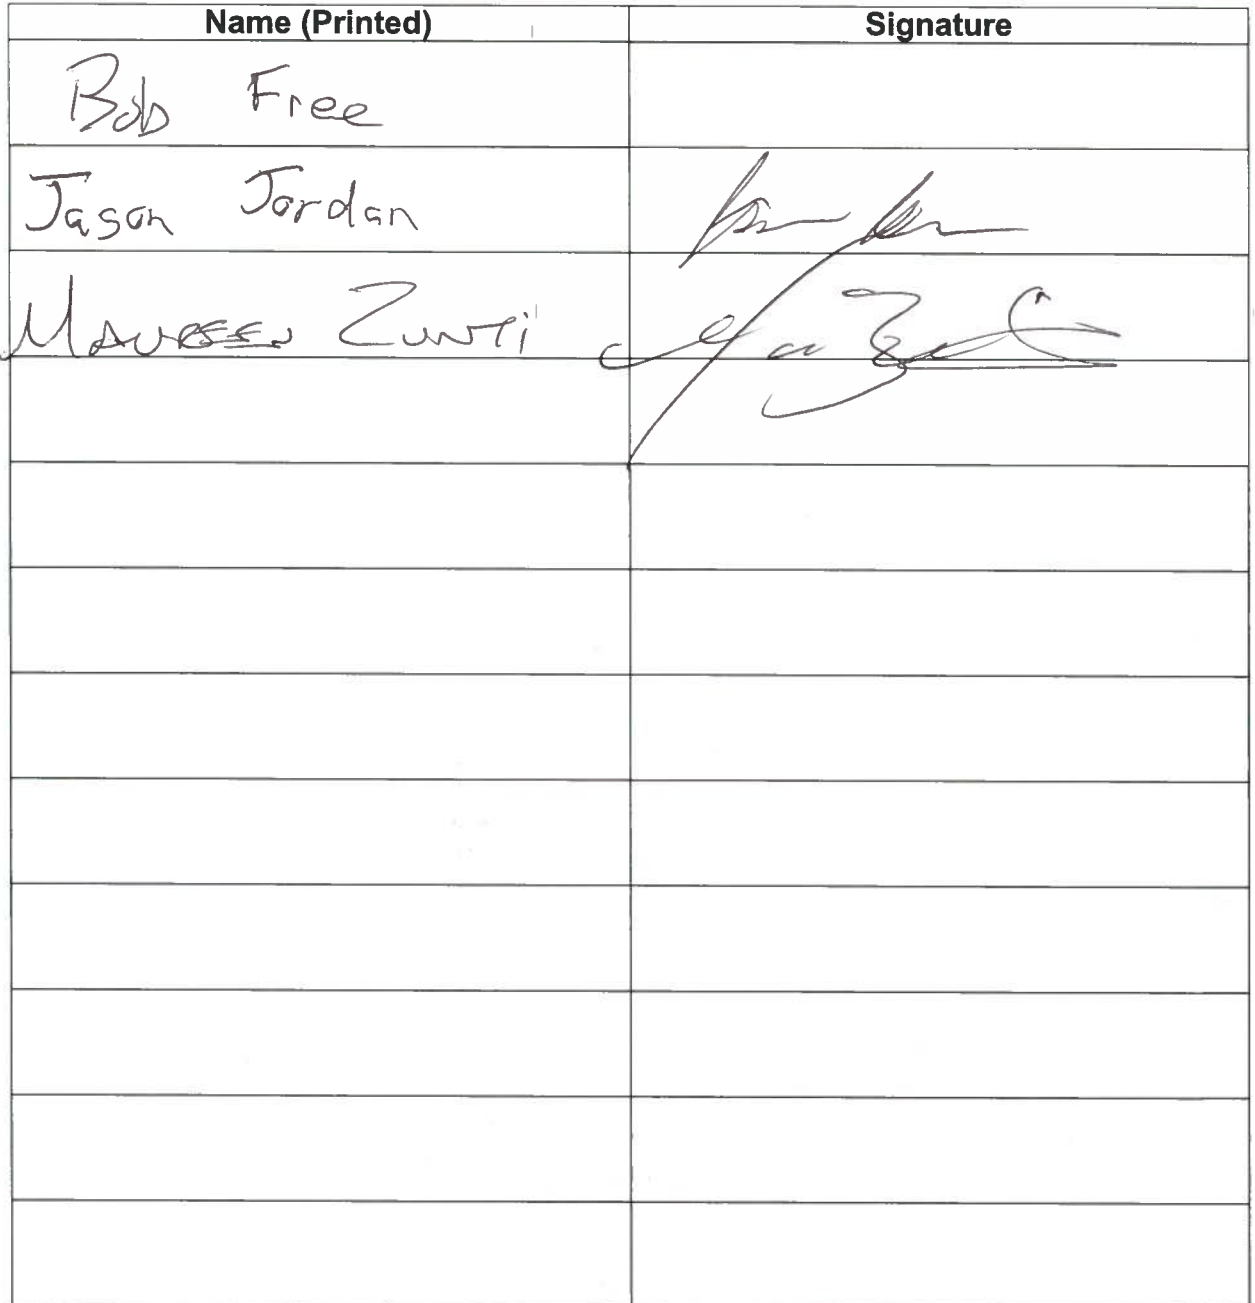 Name (Printed) Signature
Bob Free
Jason Jordan
MAUREEN ZUNTI